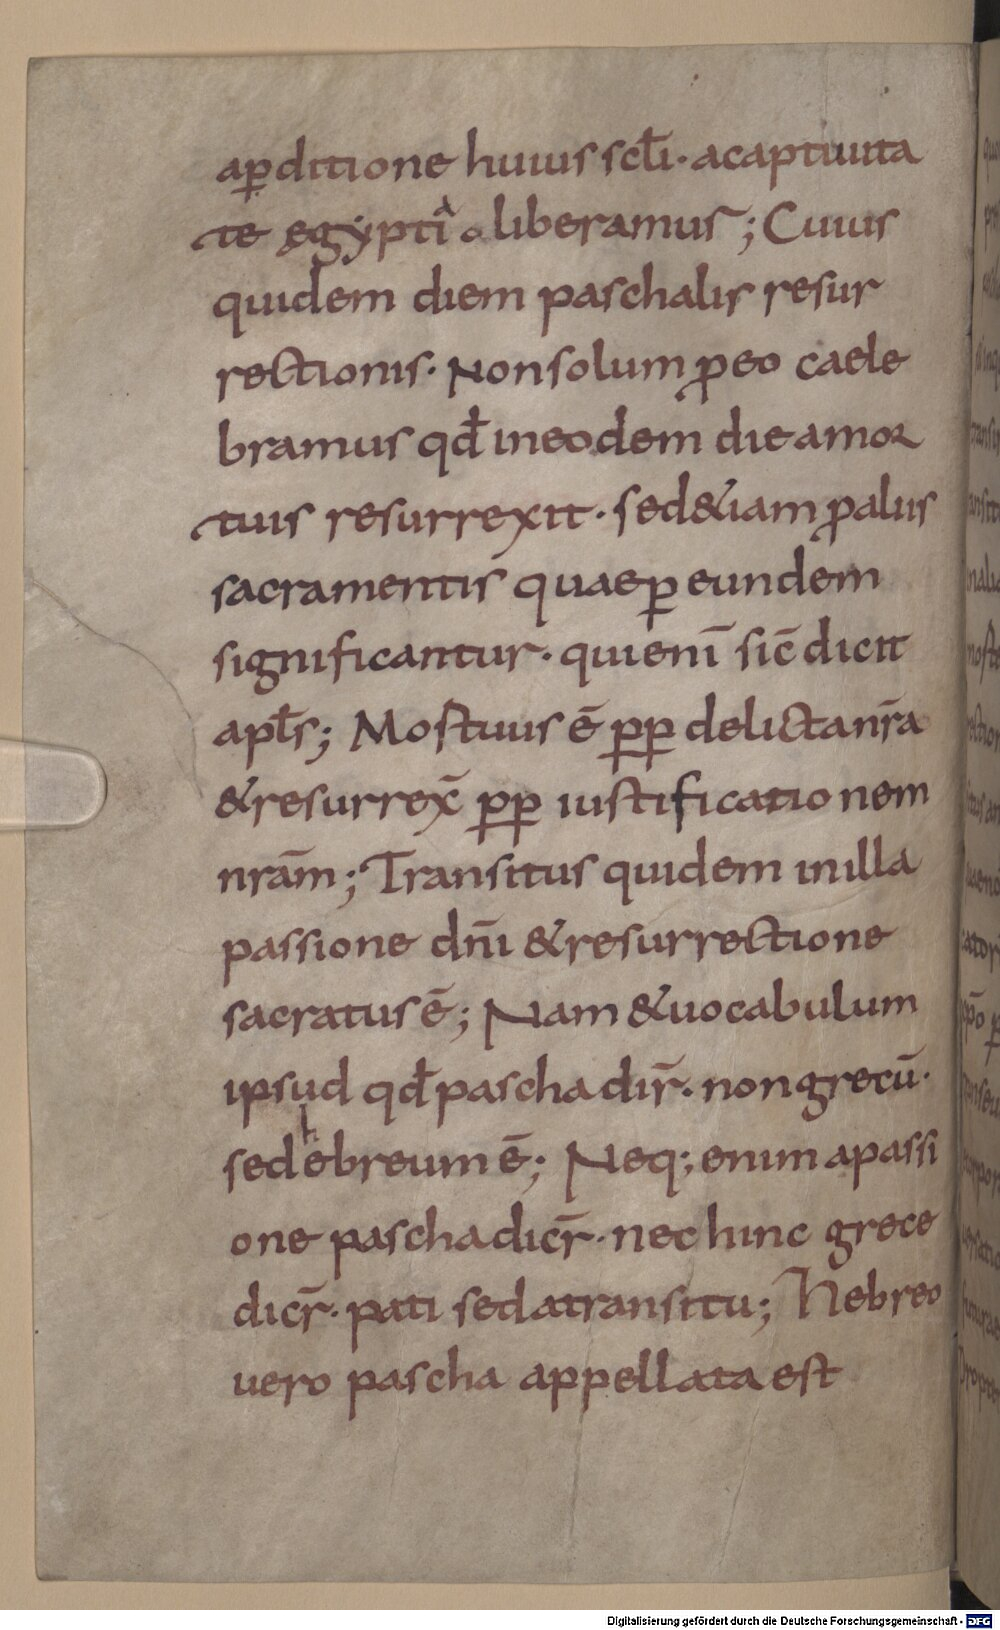 aꝑditione huius scl̄i· acaptiuita
te ęgypti a liberamus; Cuius
quidem diem paschalis resur
rectionis· Non solum ꝓeo caele
bramus qđ ineodem die amor
tuis resurrexit· sed&iam ꝓalus
sacramentis quaeꝑ eundem
significantur· quienī sic̄ dicit
apl̄s; Mostuus ē ꝑꝑ delictanr̄a
&resurrex̄ ꝑꝑ iustificationem
nrām; Transitus quidem inilla
passione dn̄i &resurrectione
sacratus ē; Nam &uocabulum
ipsud qđ pascha dir̄· non grecū·
sed hebreum ē; Neq; enim apassi
one pascha dicr̄· nec hinc grece
dicr̄· pati sed atransitu; Hebreo
uero pascha appellata est
Digitalisierung gefördert durch die Deutsche Forschungsgemeinschaft - DFG